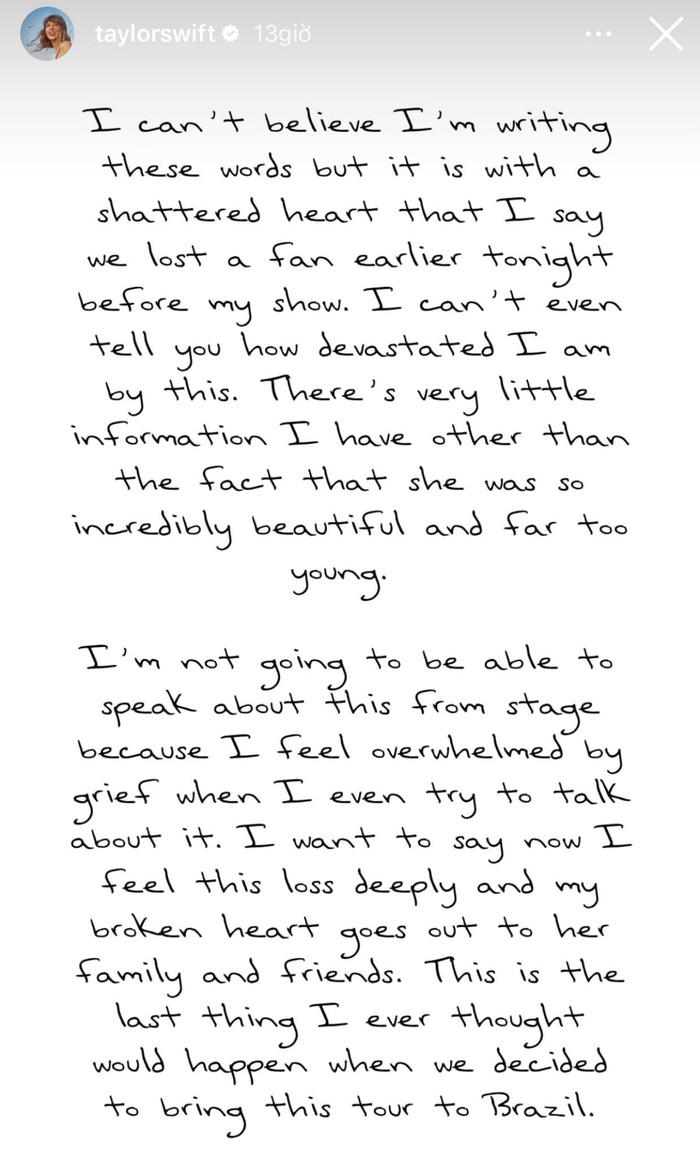 taylorswift 13giờ
I can't believe I'm writing
these words but it is with a
shattered heart that I say
we lost a fan earlier tonight
before my show. I can't even
tell you how devastated I am
by this. There's very little
information I have other than
the fact that she was so
incredibly beautiful and far too
young.
I'm not going to be able to
speak about this from stage
because I feel overwhelmed by
grief when I even try to talk
about it. I want to say now I
feel this loss deeply and my
broken heart goes out to her
family and friends. This is the
last thing I ever thought
would happen when we decided
to bring this tour to Brazil.